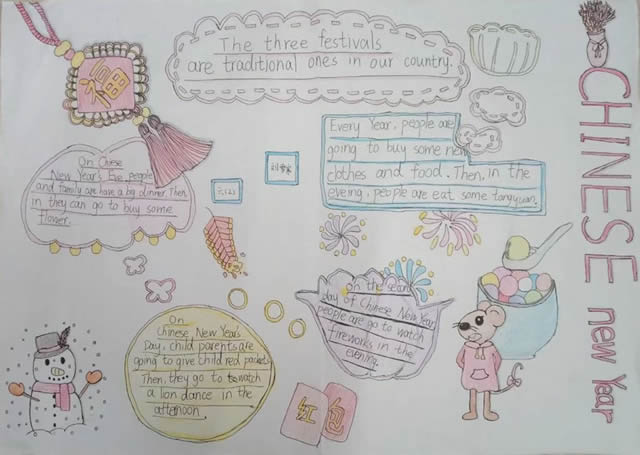 The three festivals
are traditional ones in our country.
福
On Chese
New Year's Eve, people
and family are have a big dinner. Then,
in they can go to buy some
flower.
六(2)
Every Year, people are
going to buy some new
clothes and food. Then, in the
eveing, people are eat some tangyuan.
CHINESE new Year
On
Chinese New Year's
Day, child parents are
going to give child red packets
Then, they go to watch
a lion dance in the
afternoon
on the secon
day of Chinese New Year
people are go to watch
fireworks in the
evening.
红 包